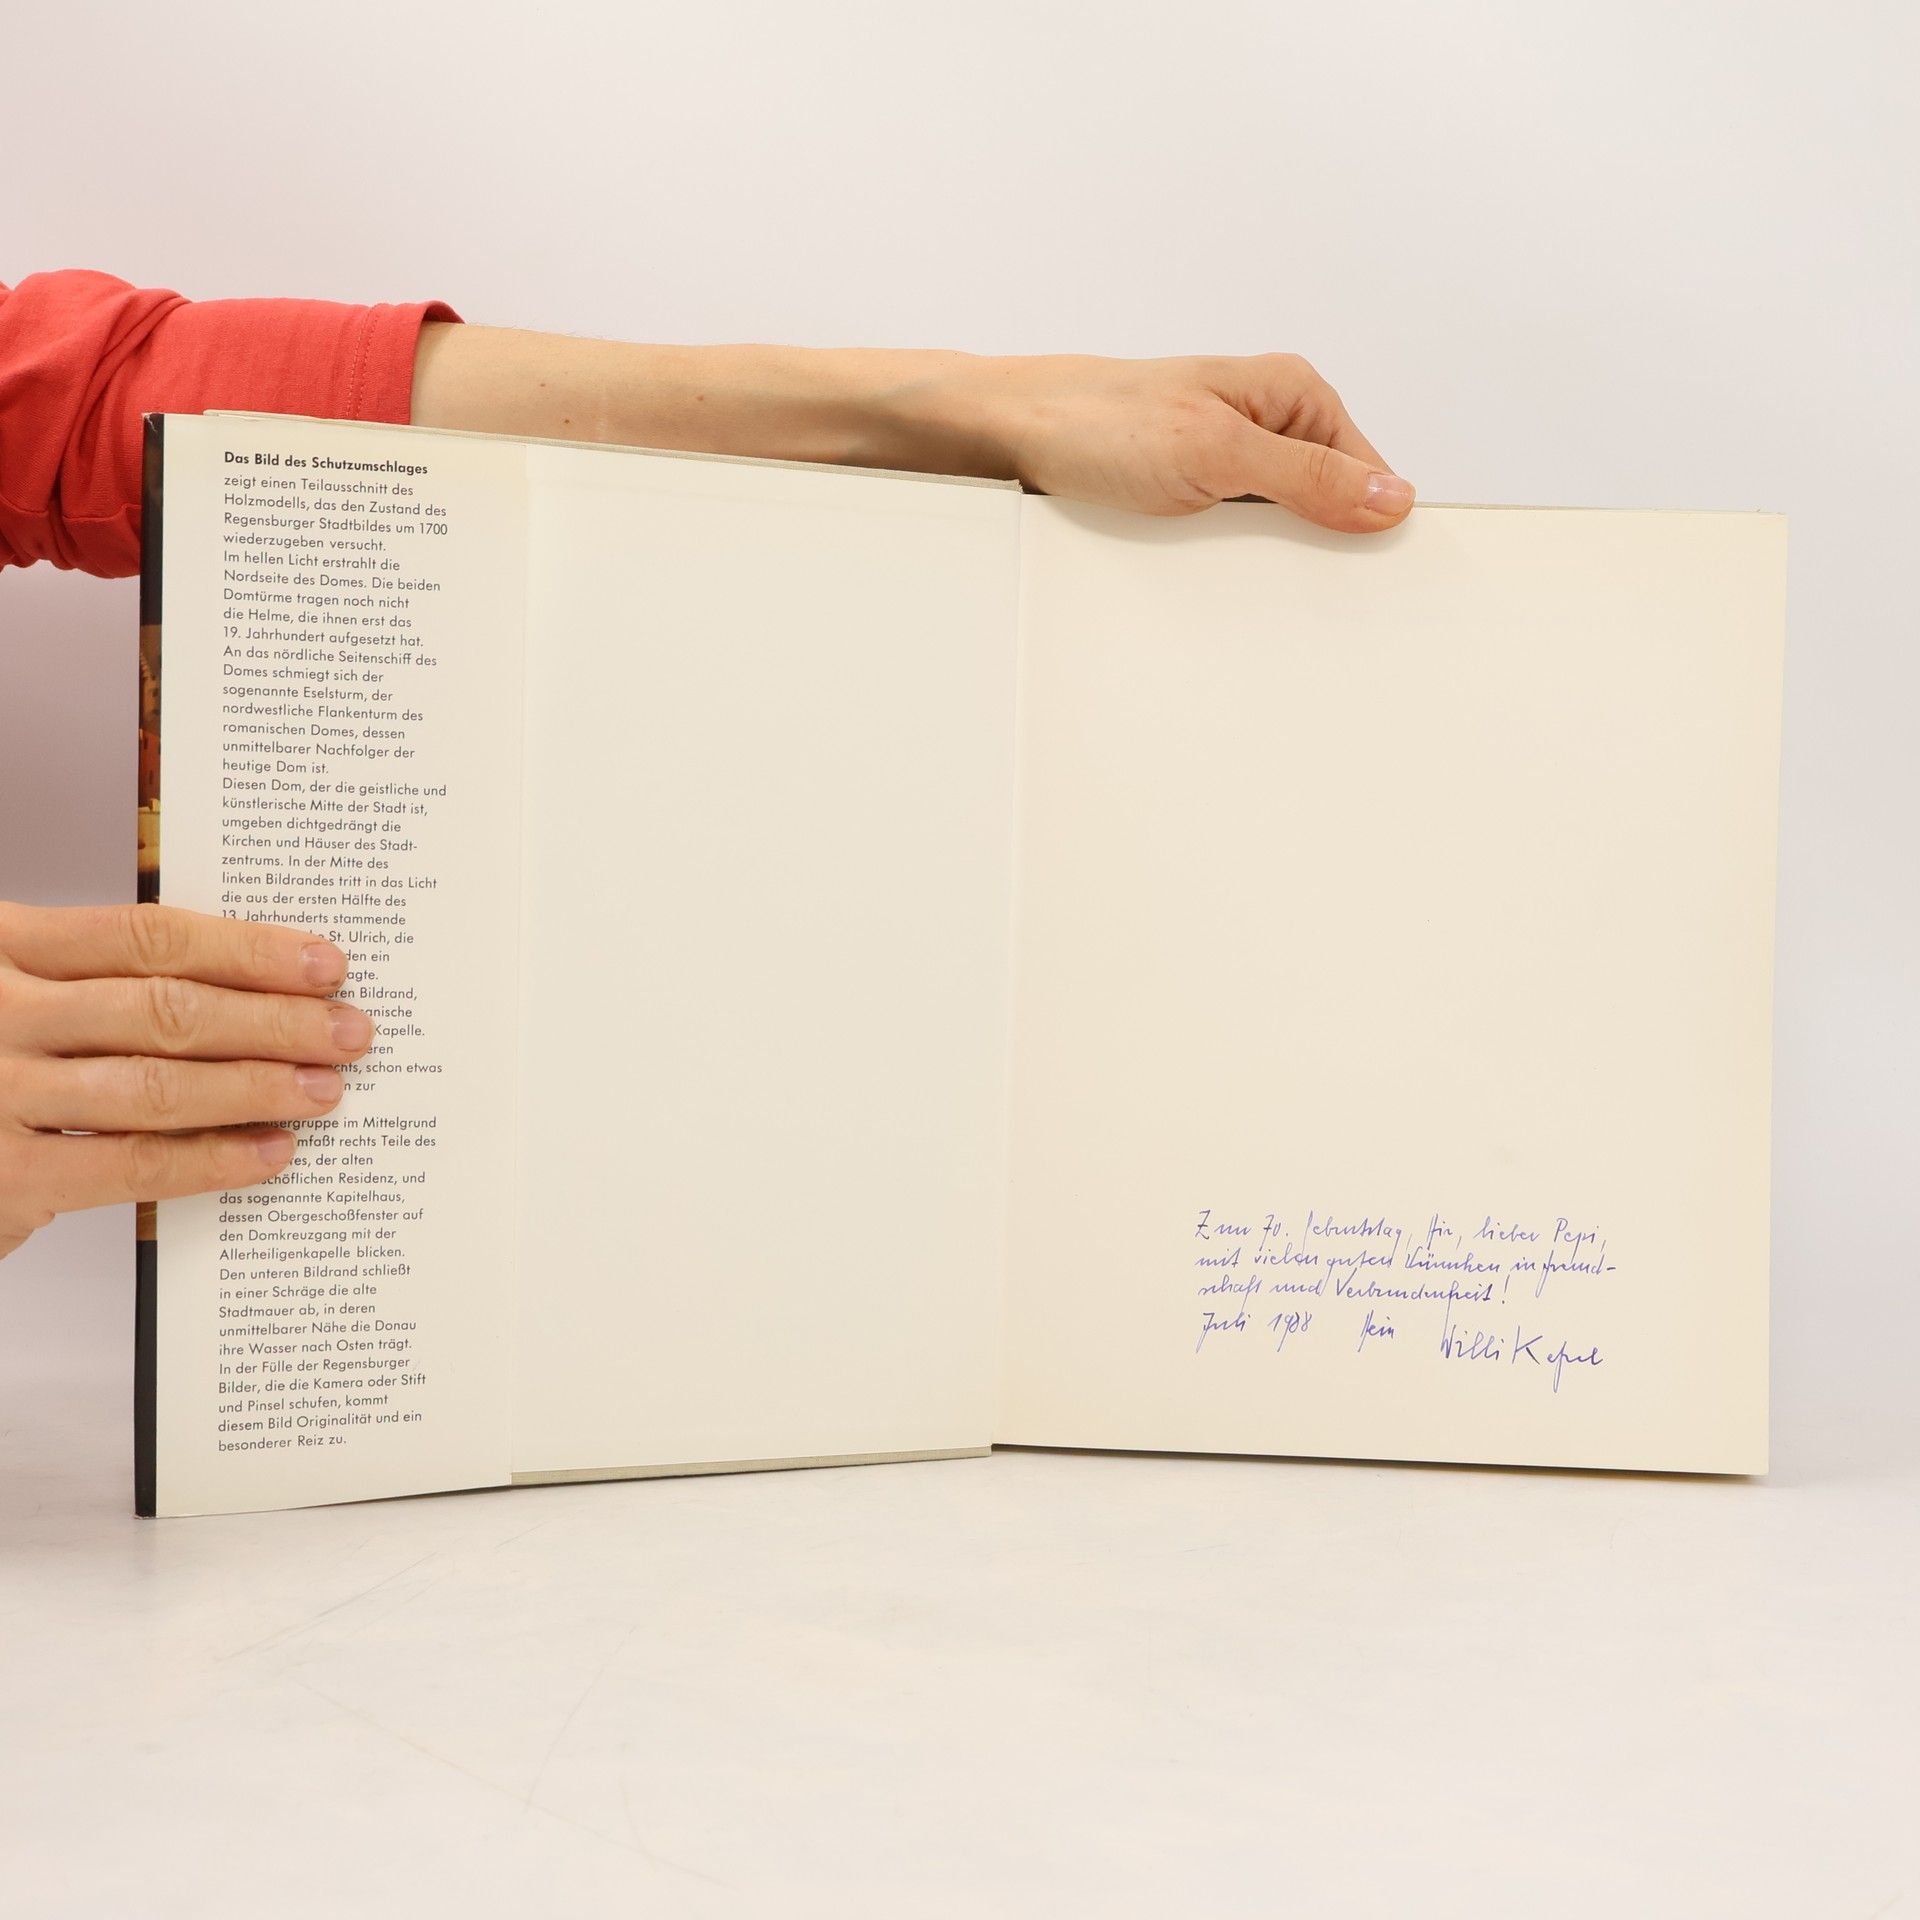 Das Bild des Schutzumschlages
zeigt einen Teilausschnitt des
Holzmodells, das den Zustand des
Regensburger Stadtbildes um 1700
wiederzugeben versucht.
Im hellen Licht erstrahlt die
Nordseite des Domes. Die beiden
Domtürme tragen noch nicht
die Helme, die ihnen erst das
19. Jahrhundert aufgesetzt hat.
An das nördliche Seitenschiff des
Domes schmiegt sich der
sogenannte Eselsturm, der
nordwestliche Flankenturm des
romanischen Domes, dessen
unmittelbarer Nachfolger der
heutige Dom ist.
Diesen Dom, der die geistliche und
künstlerische Mitte der Stadt ist,
umgeben dichtgedrängt die
Kirchen und Häuser des Stadt-
zentrums. In der Mitte des
linken Bildrandes tritt in das Licht
die aus der ersten Hälfte des
13. Jahrhunderts stammende
St. Ulrich, die
ein
Bildrand,
Kapelle.
schon etwas
zur
im Mittelgrund
rechts Teile des
der alten
Residenz, und
das sogenannte Kapitelhaus,
dessen Obergeschoßfenster auf
den Domkreuzgang mit der
Allerheiligenkapelle blicken.
Den unteren Bildrand schließt
in einer Schräge die alte
Stadtmauer ab, in deren
unmittelbarer Nähe die Donau
ihre Wasser nach Osten trägt.
In der Fülle der Regensburger
Bilder, die die Kamera oder Stift
und Pinsel schufen, kommt
diesem Bild Originalität und ein
besonderer Reiz zu.
Zum 70. Geburtstag, Dir, lieber Pepi,
mit vielen guten Wünschen, in Freund-
schaft und Verbundenheit!
Juli 1988 Dein Willi